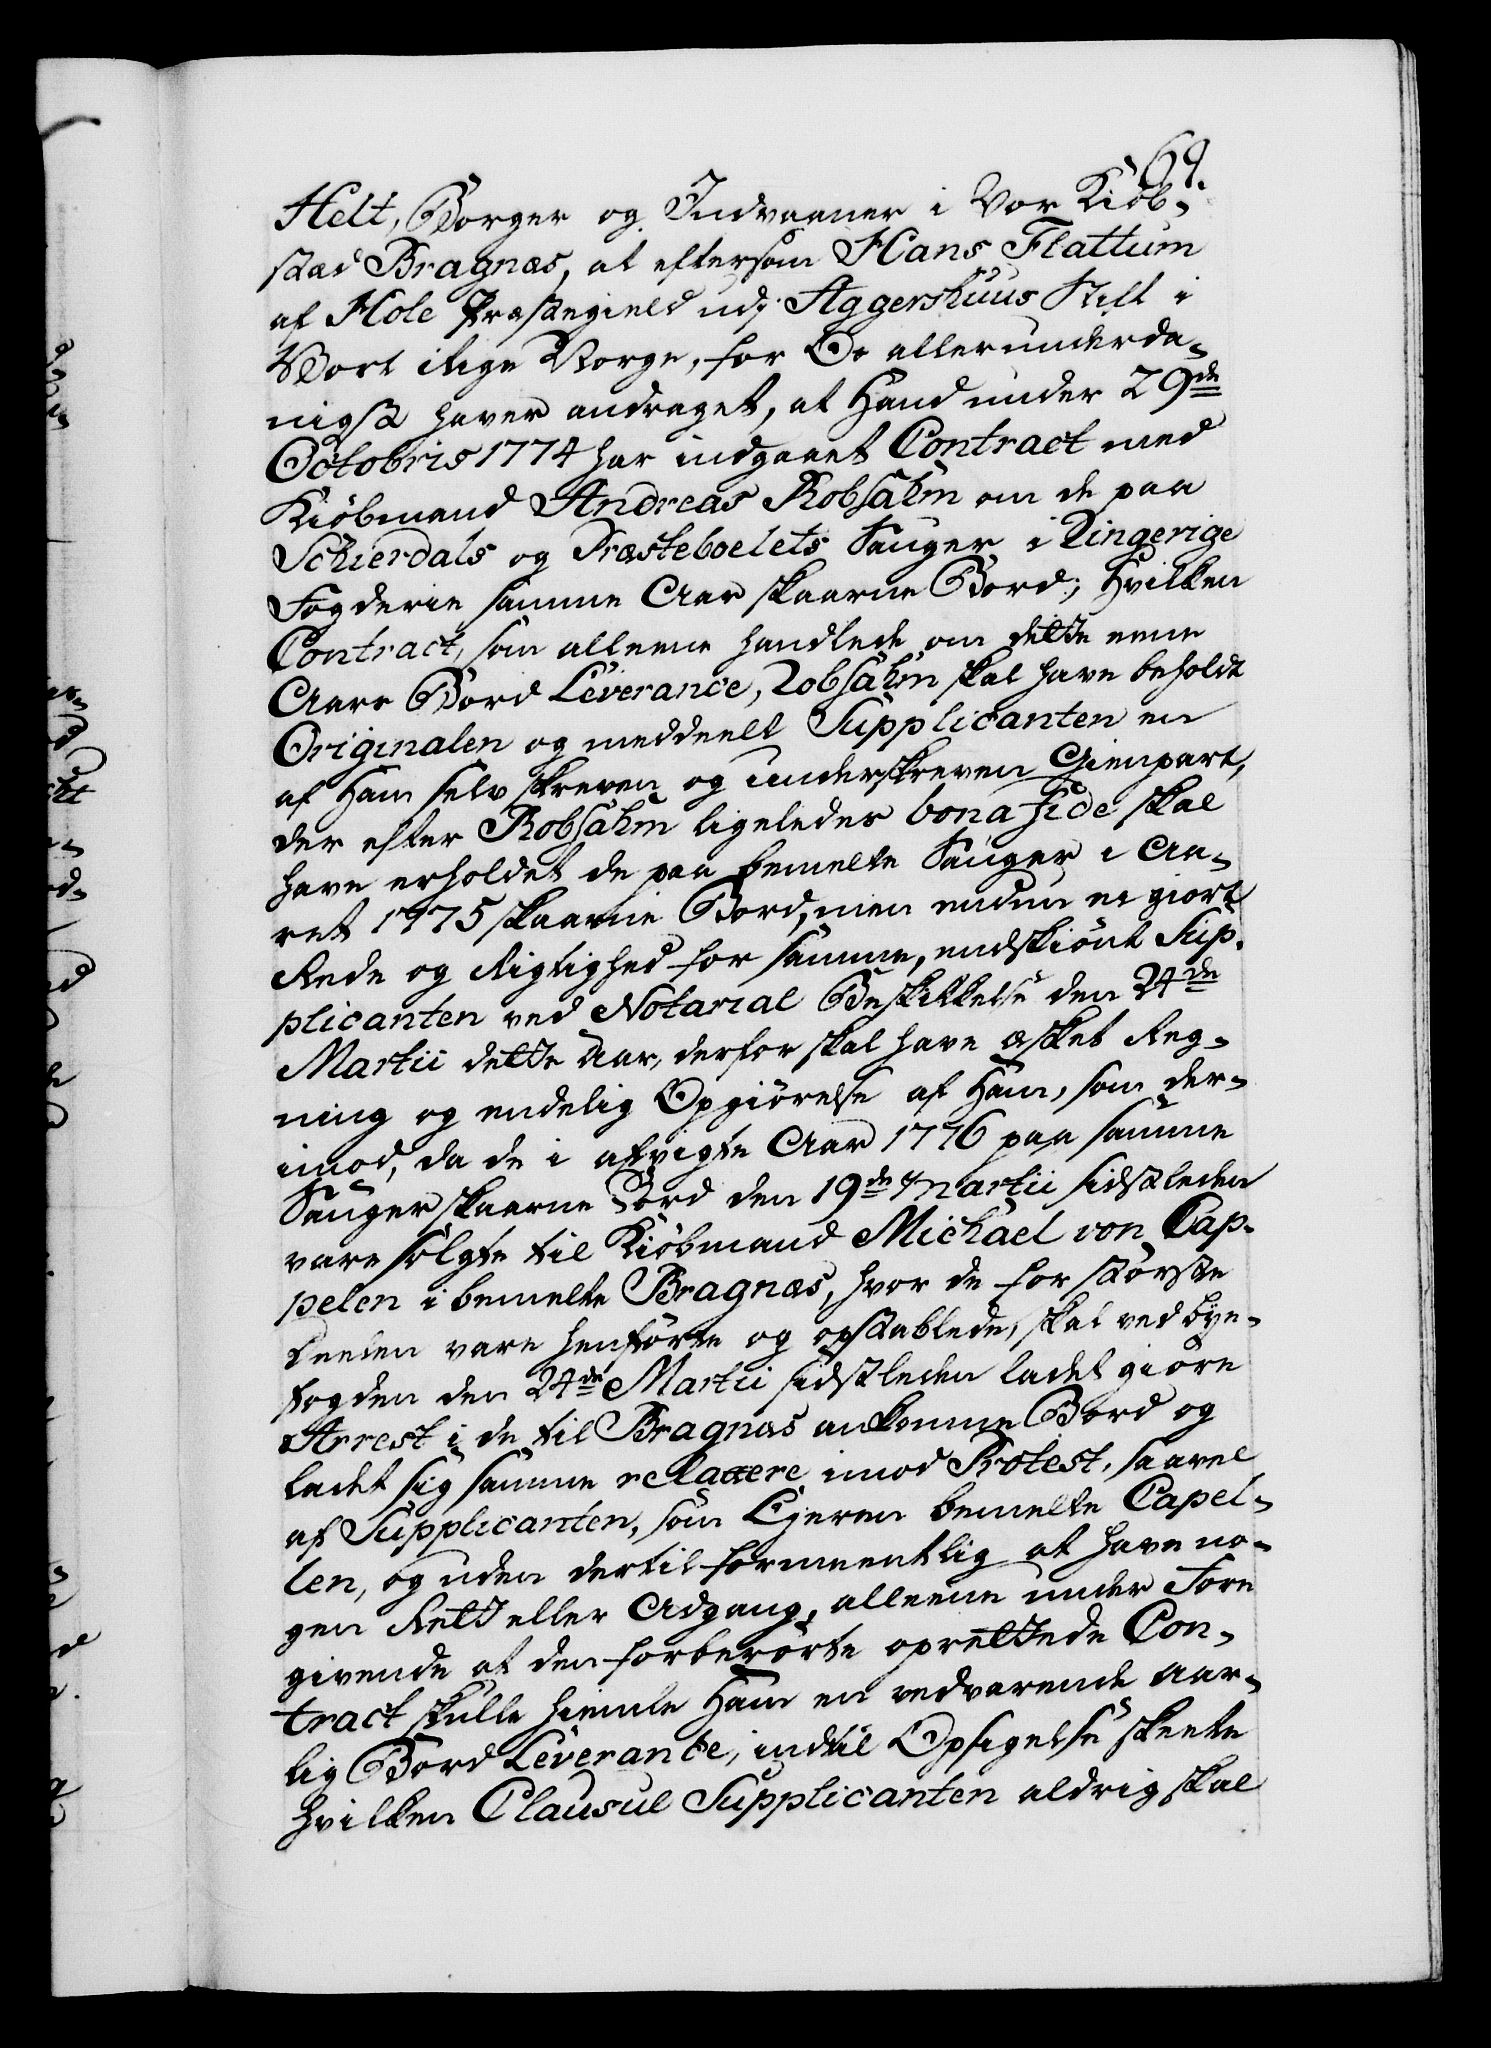 69.
Helt, Borger og Indvaaner i Vor Kiöb-
stæd Bragnæs, at eftersom Hans Flattum
af Hole Præstegield udj Aggershuus Stift i
Vort Rige Norge, for Os allerunderda-
nigst haver andraget, at Hand under 29de
Octobris 1774 har indgaaet Contract med
Kiöbmand Andreas Robsahm om de paa
Schierdals og Præsteboelets Sauger i Ringerige
Fogderie samme Aar skaarne Bord; Hvilken
Contract, som alleene handlede om dette eene
Aars Bord Leverance, Robsahm skal have beholdt
Originalen og meddeelt Supplicanten en
af Ham selv skreven og underskreven Gienpart,
der efter Robsahm ligeledes bona fide skal
have erholdet de paa bemelte Sauger i Aa-
ret 1775 skaarne Bord, men endnu ei giort
Rede og Rigtighed for samme, endskiönt Sup-
plicanten ved Notarial Beskikkelse den 24de
Martii dette Aar, derfor skal have æsket Reg-
ning og endelig Opgiörelse af Ham, som der-
imod, da de i afvigte Aar 1776 paa samme
Sauger skaarne Bord den 19de Martii sidstleden
vare solgte til Kiöbmand Michael von Cap-
pelen i bemelte Bragnæs, hvor de for störste
Deelen vare henförte og opstablede, skal ved bye-
fogden den 24de Martii sidstleden ladet giöre
Arrest i de til Bragnæs ankomne Bord og
ladet sig samme relaxere imod Protest, saavel
af Supplicanten, som Ejeren bemelte Capel-
len, og uden dertil formeentlig at have no-
gen Rett eller Adgang, alleene under Fore
givende at den forberörte oprettede Con-
tract skulle hiemle Ham en vedvarende aar-
lig Bord Leverance, indtil Opsigelse skeete
hvilken Clausul Supplicanten aldrig skal